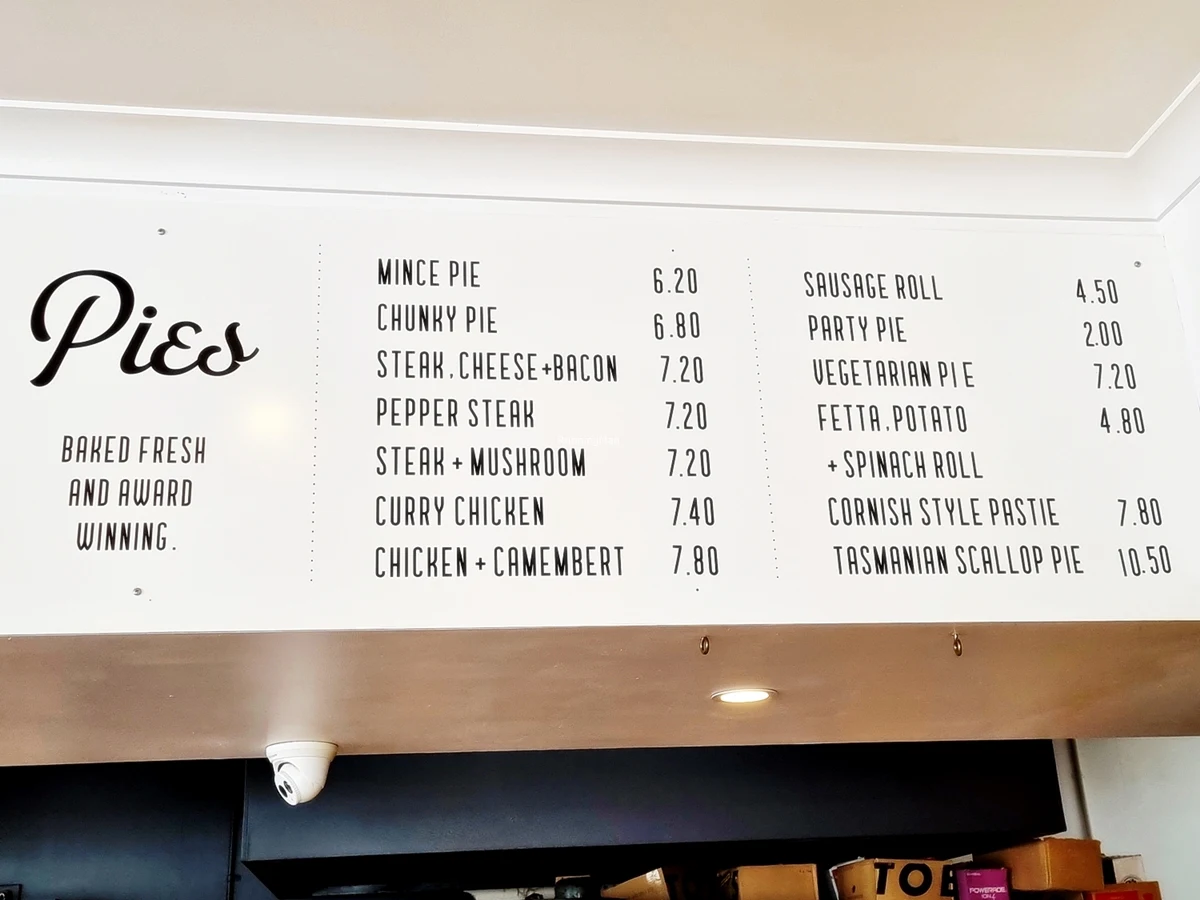 Pies
BAKED FRESH
AND AWARD
WINNING.
MINCE PIE 6.20
CHUNKY PIE 6.80
STEAK, CHEESE+BACON 7.20
PEPPER STEAK 7.20
STEAK + MUSHROOM 7.20
CURRY CHICKEN 7.40
CHICKEN + CAMEMBERT 7.80
SAUSAGE ROLL 4.50
PARTY PIE 2.00
VEGETARIAN PIE 7.20
FETTA, POTATO 4.80
+ SPINACH ROLL
CORNISH STYLE PASTIE 7.80
TASMANIAN SCALLOP PIE 10.50
TOB
POWERADE
ION4